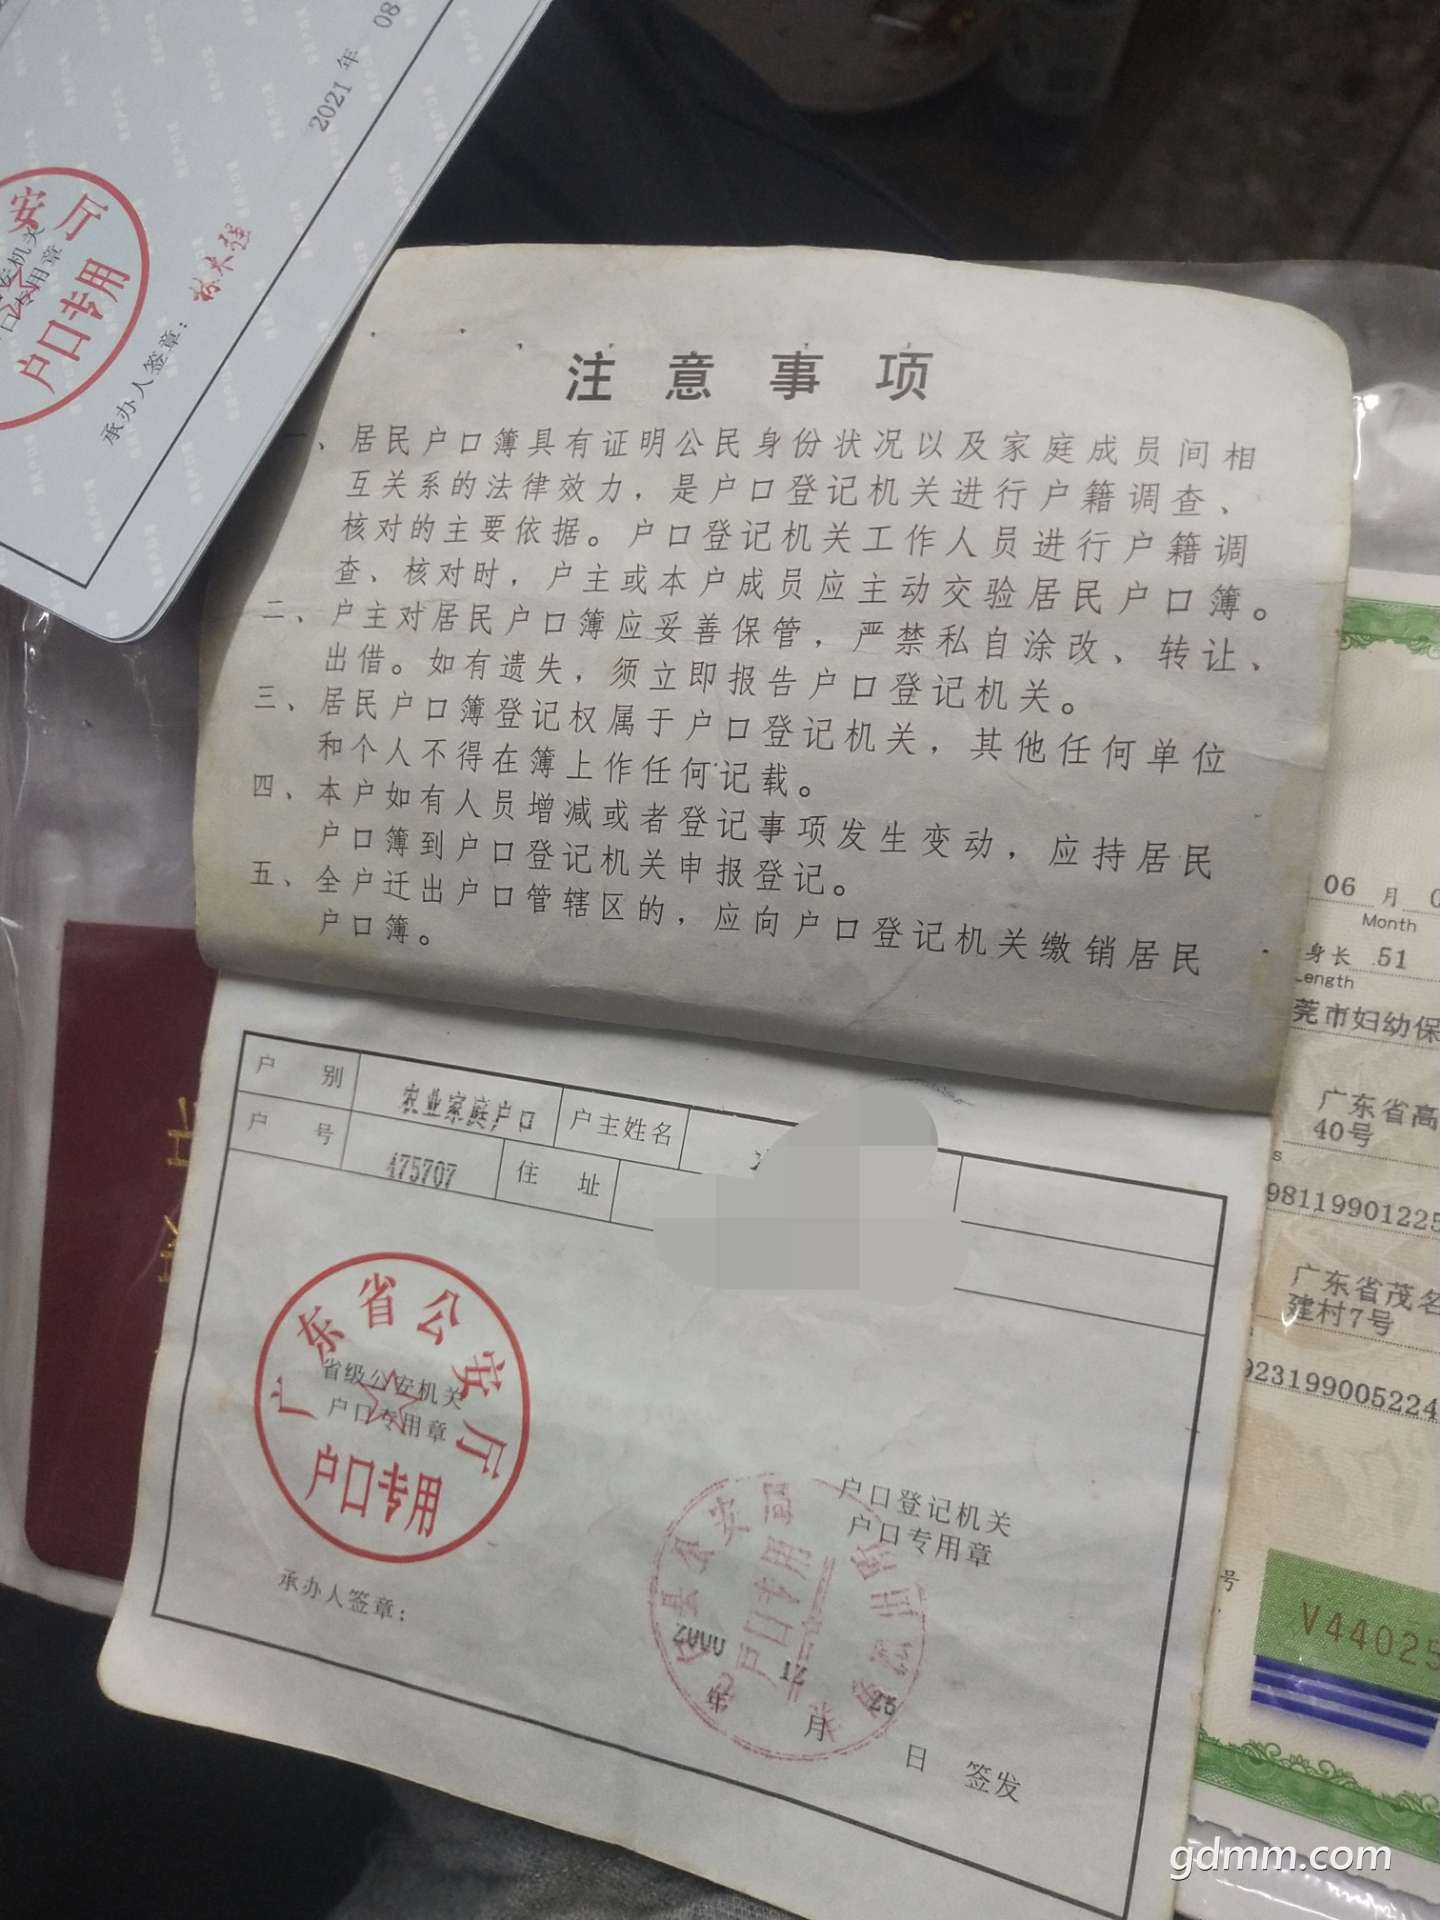 2021年 08
安厅
户口专用
承办人签章：
注意事项
一、居民户口簿具有证明公民身份状况以及家庭成员间相
互关系的法律效力，是户口登记机关进行户籍调查、
核对的主要依据。户口登记机关工作人员进行户籍调
查、核对时，户主或本户成员应主动交验居民户口簿。
二、户主对居民户口簿应妥善保管，严禁私自涂改、转让、
出借。如有遗失，须立即报告户口登记机关。
三、居民户口簿登记权属于户口登记机关，其他任何单位
和个人不得在簿上作任何记载。
四、本户如有人员增减或者登记事项发生变动，应持居民
户口簿到户口登记机关申报登记。
五、全户迁出户口管辖区的，应向户口登记机关缴销居民
户口簿。
户别 农业家庭户口 户主姓名
户号 475707 住址
广东省公安厅
省级公安机关
户口专用章
户口专用
承办人签章：
户口登记机关
户口专用章
县公安局
户口专用
2000 年 12 月 25 日 签发
06 月
Month
身长 51
Length
莞市妇幼保
广东省高
40号
98119901225
广东省茂名
建村7号
923199005224
号
V44025
gdmm.com